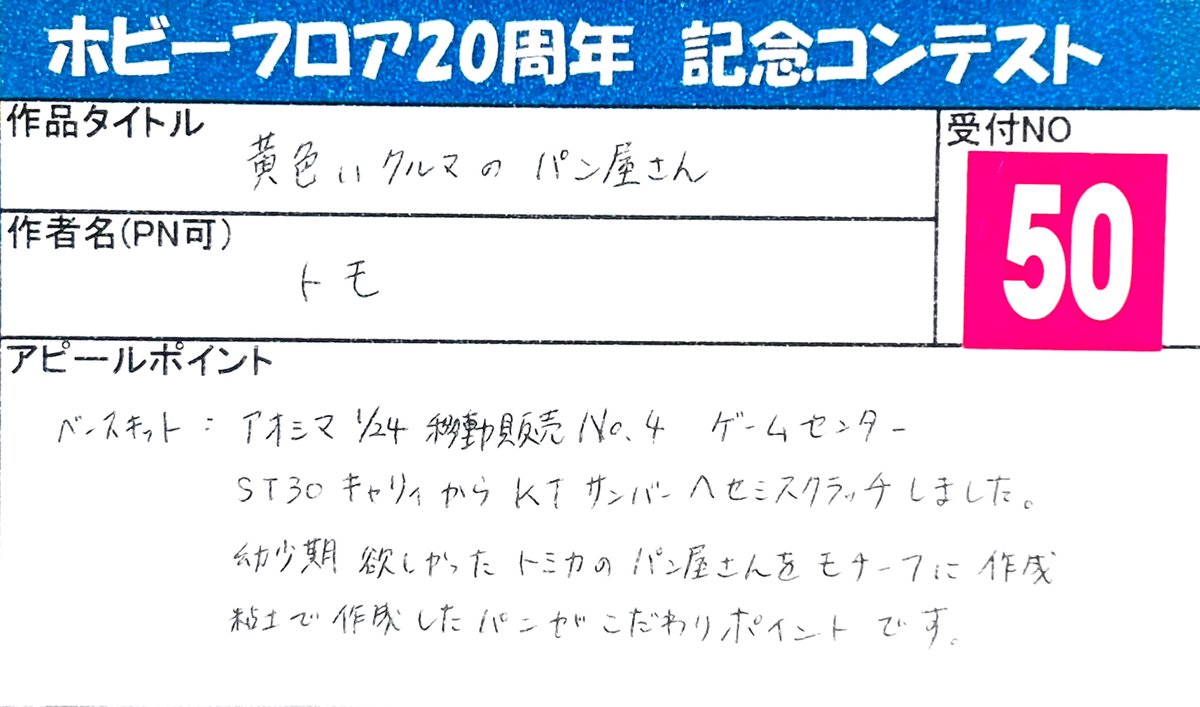 ホビーフロア20周年 記念コンテスト
作品タイトル
黄色いクルマのパン屋さん
受付NO
50
作者名(PN可)
トモ
アピールポイント
ベースキット:アオシマ 1/24 移動販売 No.4 ゲームセンター
ST30キャリィからKTサンバーへセミスクラッチしました。
幼少期欲しかったトミカのパン屋さんをモチーフに作成
粘土で作成したパンがこだわりポイントです。